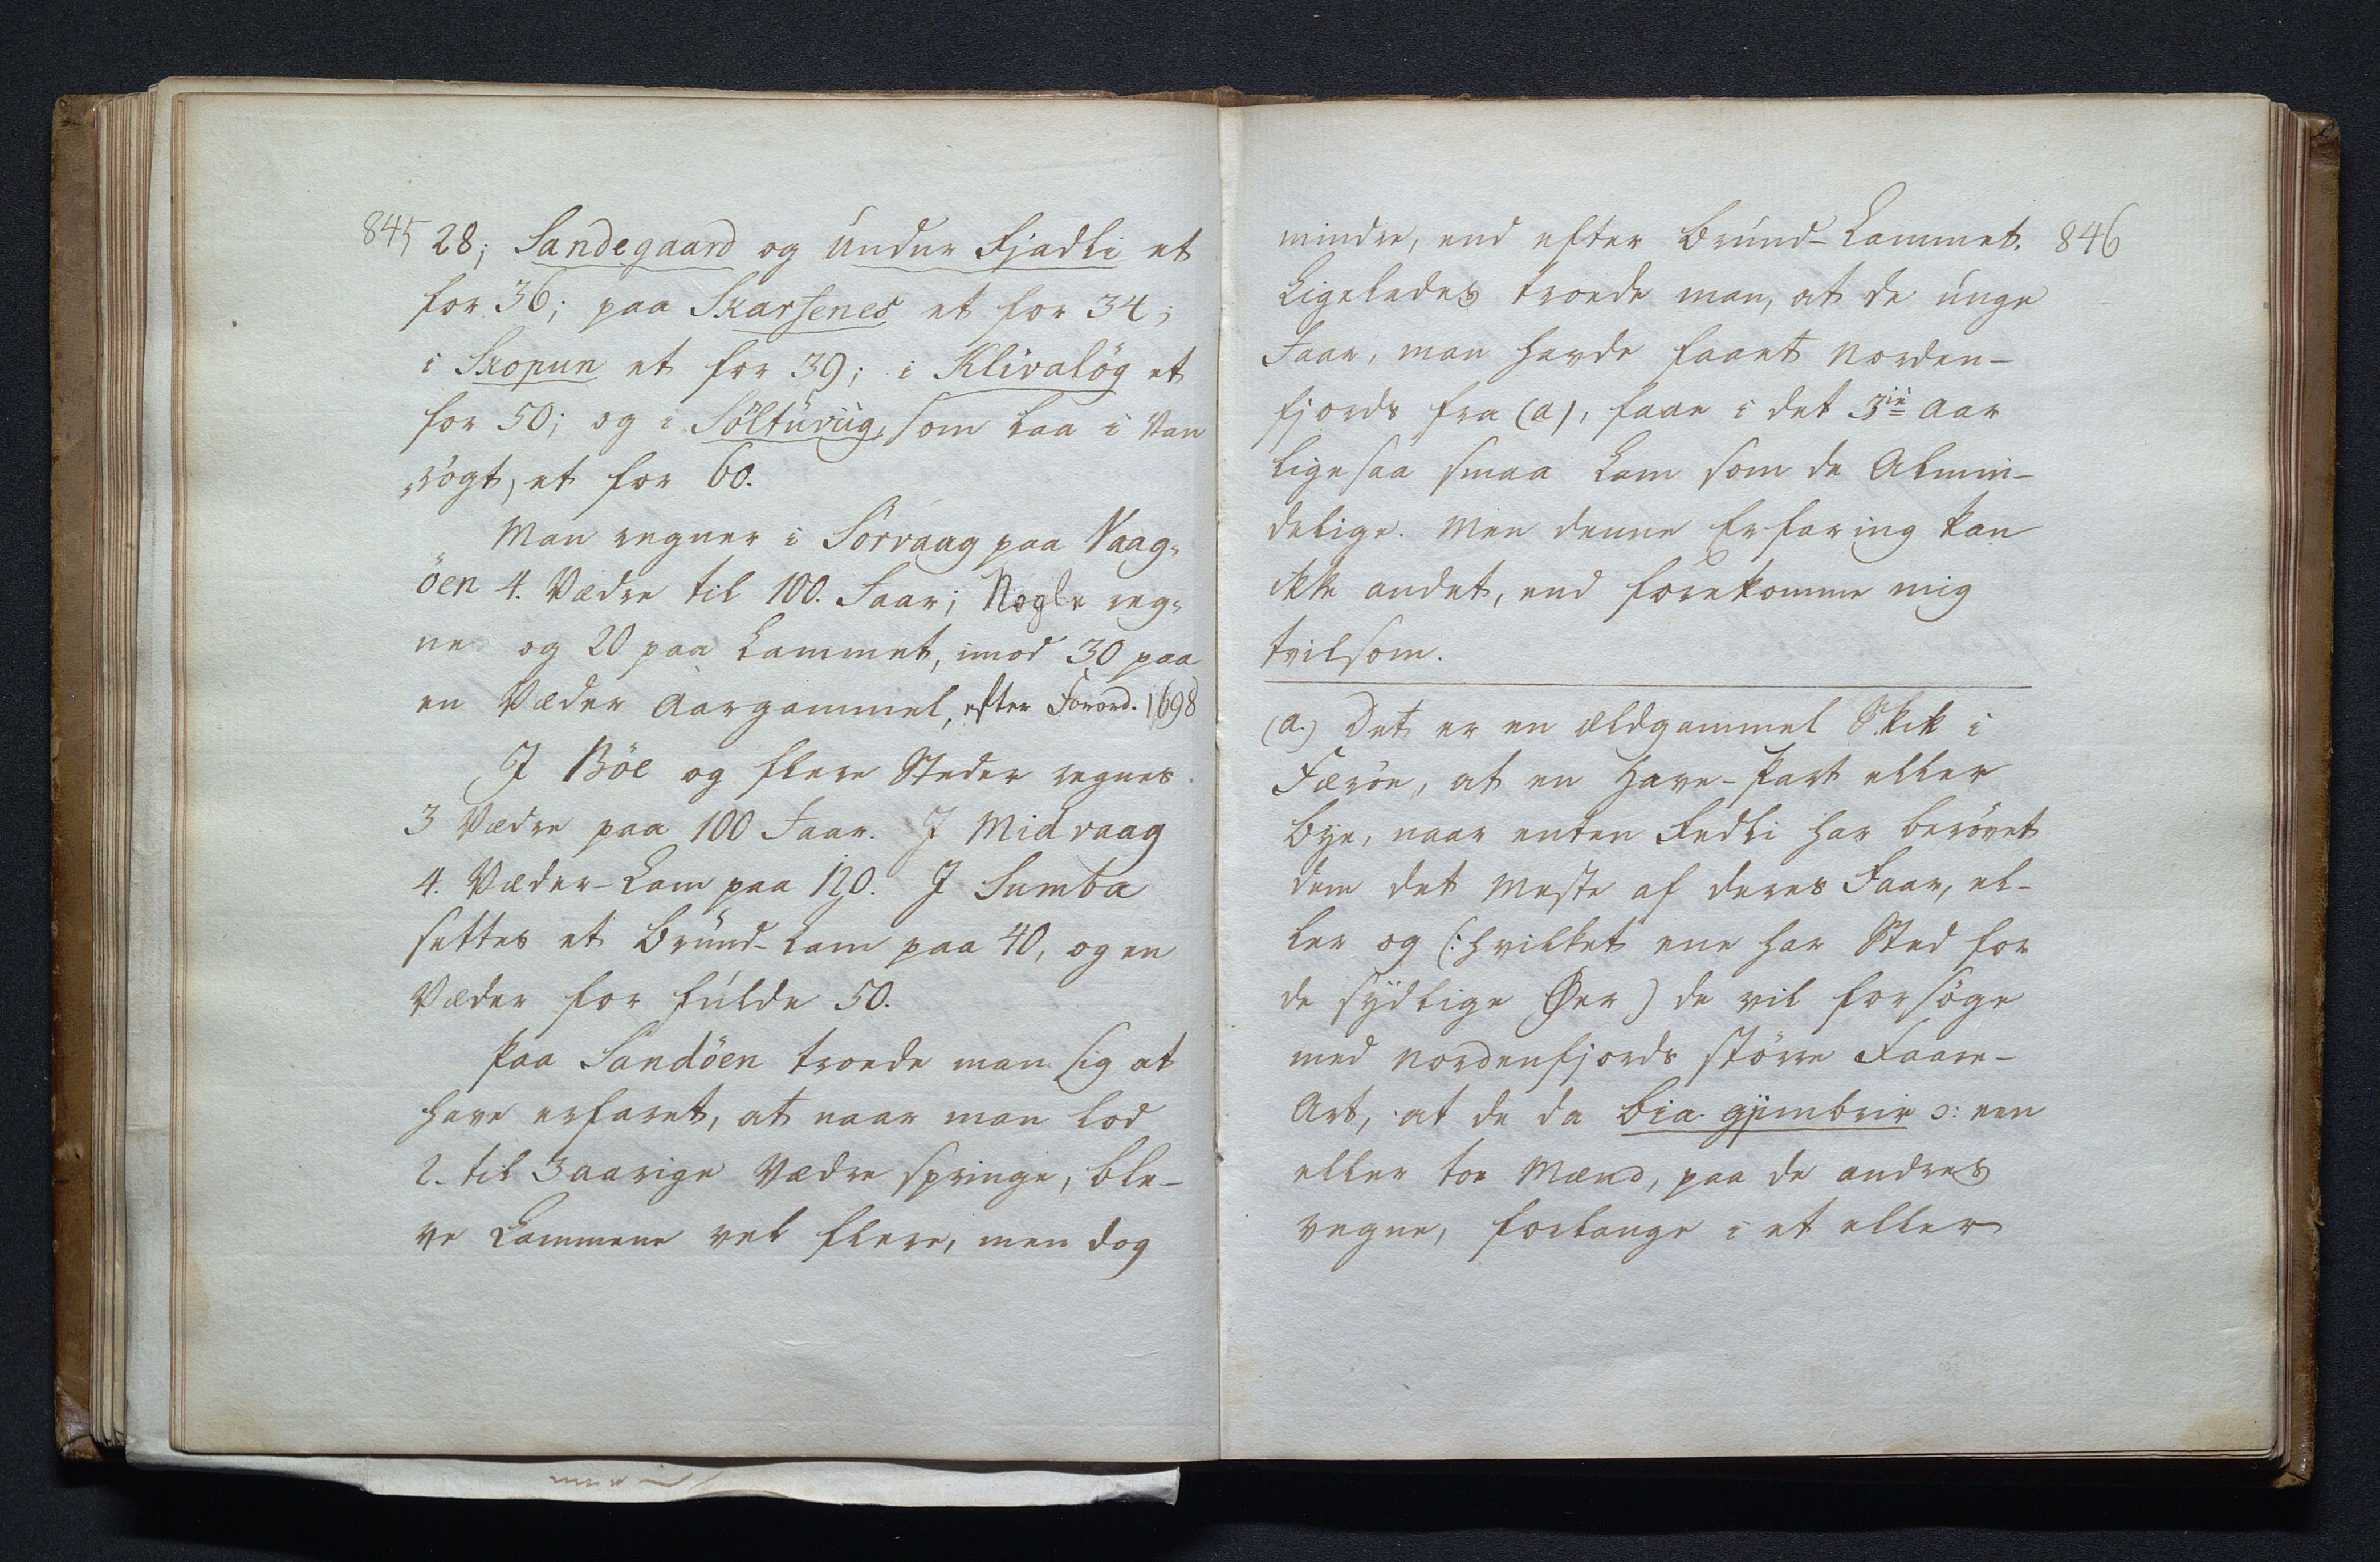 845 28; Sandegaard og Undur Fjadli et
for 36; paa Skarsenes et for 34;
i Skopun et for 39; i Klivalög et
for 50; og i Söltuviig, som laa i Van
rögt, et for 60.
Man regner i Sörvaag paa Vaag-
öen 4. Vædre til 100. Faar; Nogle reg-
ne og 20 paa Lammet, imod 30 paa
en Væder Aargammel, efter Forord. 1698
I Böe og flere Steder regnes
3 Vædre paa 100 Faar. I Midvaag
4. Væder-Lam paa 120. I Sumba
settes et Brund-Lam paa 40, og en
Væder for fulde 50.
Paa Sandöen troede man sig at
have erfaret, at naar man lod
2. til 3aarige Vædre springe, ble-
ve Lammene vel flere, men dog
mindre, end efter Brund-Lammet. 846
Ligeledes troede man, at de unge
Faar, man havde faaet Norden-
fjords fra (a), faae i det 3die Aar
ligesaa smaa Lam som de Almin-
delige. Men denne Erfaring kan
ikke andet, end forekomme mig
tvilsom.
(a.) Det er en ældgammel Skik i
Færöe, at en Have-Part eller
Bye, naar enten Fedli har berövet
dem det Meste af deres Faar, el-
ler og (: hvilket ene har Sted for
de sydlige Øer) de vil forsöge
med Nordenfjords större Faare-
Art, at de da bia gjimbrir ɔ: een
eller toe Mænd, paa de andres
vegne, forlange i et eller